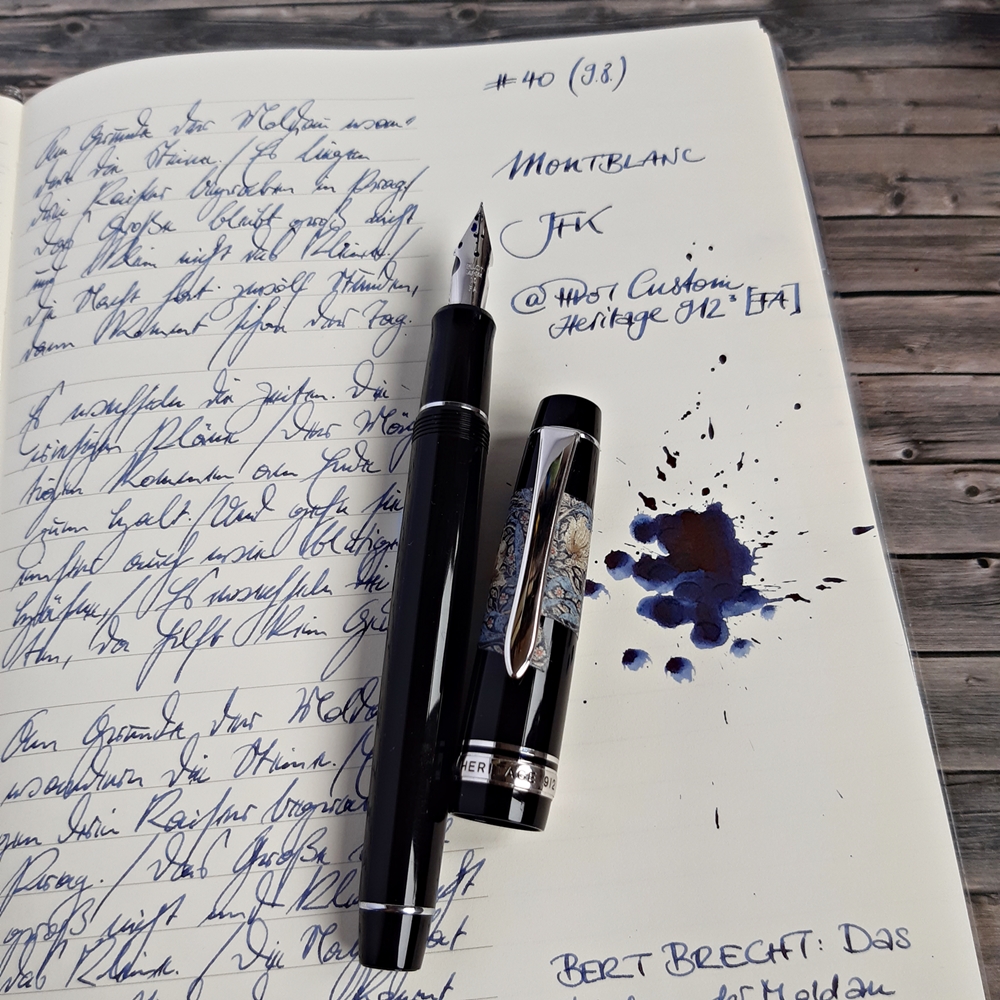 Am Grunde der Moldau wan-
dern die Steine. / Es liegen
drei Kaiser begraben in Prag/
Das Große bleibt groß nicht
und klein nicht das Kleine/
die Nacht hat zwölf Stunden,
dann kommt schon der Tag.
Es wechseln die Zeiten. Die
riesigen Pläne / der Mäch
tigen kommen am Ende
zum Halt. / Und gehn sie
einher auch wie blutige
Hähne, / Es wechseln die Zei
ten, da hilft kein
Am Grunde der Moldau
wandern die Steine. /
gen drei Kaiser
Prag. / Das Große
groß nicht und nicht
das Kleine. / Die hat
kommt
#40 (9.8.)
MONTBLANC
JFK
@ Pilot Custom
Heritage 912 [FA]
HERITAGE 912
BERT BRECHT: DAS
der Moldau